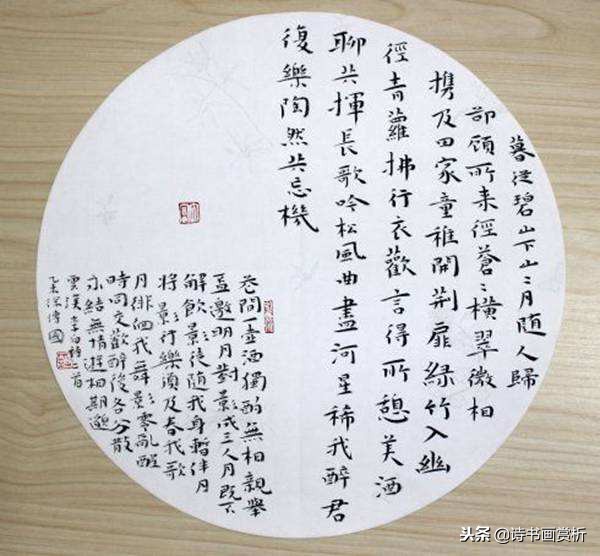 暮從碧山下山〻月随人歸
却顧所来徑蒼〻横翠微相
携及田家童稚開荆扉緑竹入幽
徑青蘿拂行衣歡言得所憩美酒
聊共揮長歌吟松風曲盡河星稀我醉君
復樂陶然共忘機
花間壺酒獨酌無相親舉
盃邀明月對影成三人月既不
解飲影徒随我身暫伴月
将影行樂須及春我歌
月徘徊我舞影零亂醒
時同交歡醉後各分散
永結無情遊相期邈
雲漢 李白詩二首
頭条 @诗书画赏析